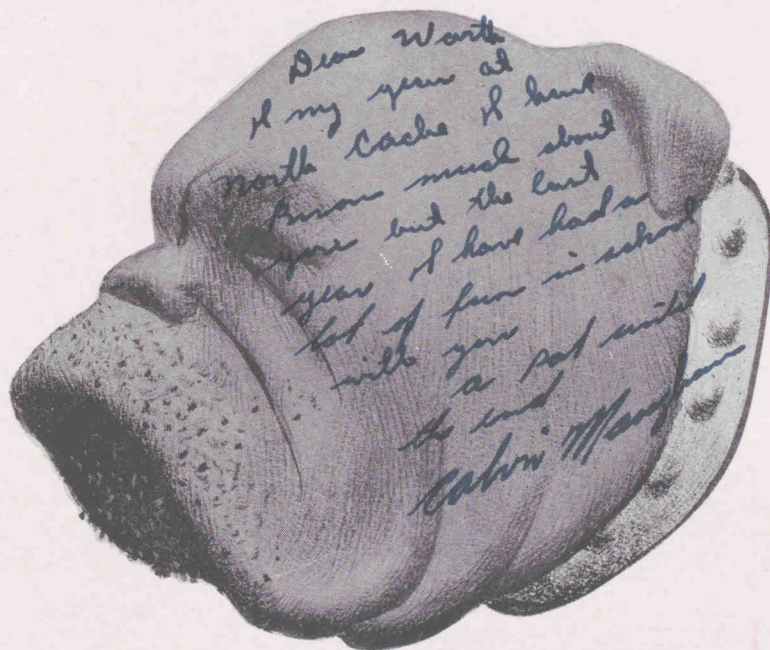 Dear Worth
of my year at
North Cache I have
known much about
you but the last
year I have had a
lot of fun in school
with you
a pal until
the end
Calvin Maughan